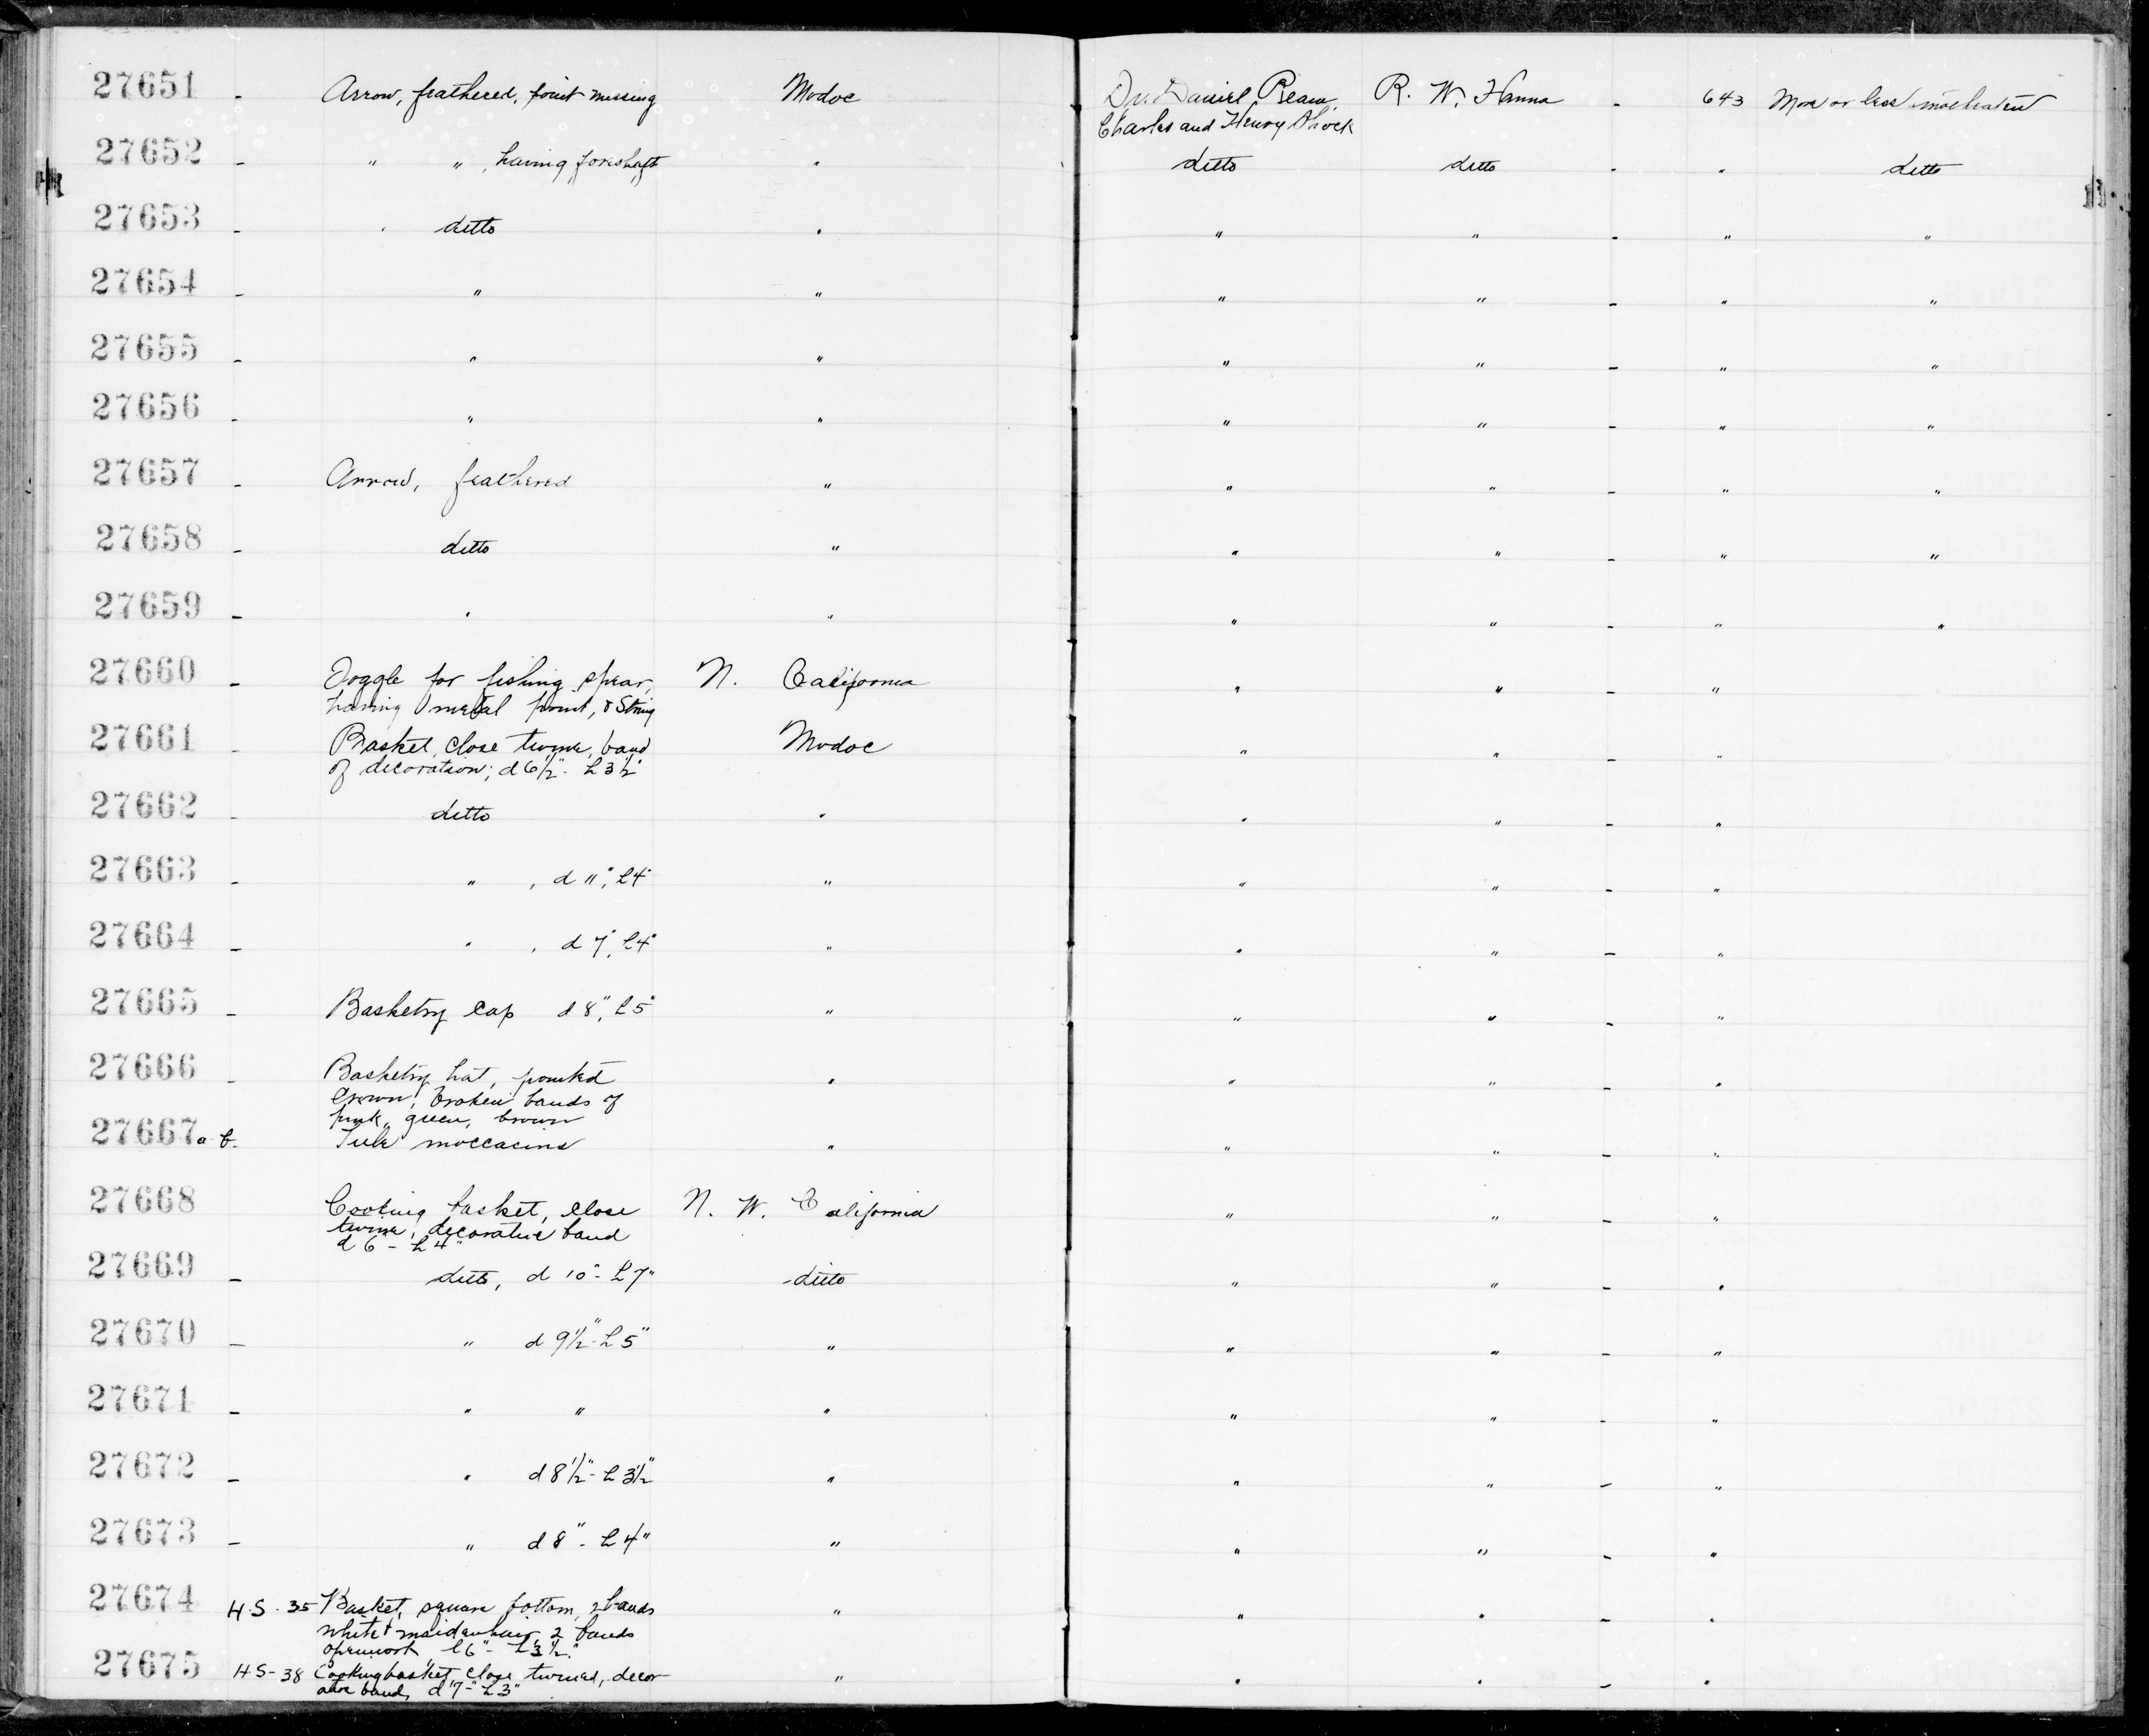 27651 - Arrow, feathered, point missing Modoc Dr. Daniel Ream, R. W. Hanna - 643 More or less moth eaten
Charles and Henry Shock
27652 - " " , having foreshaft " ditto ditto - " ditto
27653 - " ditto " " " - " "
27654 - " " " " - " "
27655 - " " " " - " "
27656 - " " " " - " "
27657 - Arrow, feathered " " " - " "
27658 - ditto " " " - " "
27659 - " " " " - " "
27660 - Toggle for fishing spear, N. California " " - "
having metal point, & String
27661 - Basket, close twine, band Modoc " " - "
of decoration; d 6½" - h 3½"
27662 - ditto " " " - "
27663 - " , d 11", h 4" " " " - "
27664 - " , d 7", h 4" " " " - "
27665 - Basketry cap d 8", h 5" " " " - "
27666 - Basketry hat, pointed " " " - "
crown, broken bands of
pink, green, brown
27667 a-b. Tule moccasins " " " - "
27668 Cooking basket, close N. W. California " " - "
twine, decorative band
d 6 - h 4"
27669 - ditto, d 10" - h 7" -ditto " " - "
27670 - " d 9½" - h 5" " " " - "
27671 - " " " " " - "
27672 - " d 8½" - h 3½" " " " - "
27673 - " d 8" - h 4" " " " - "
27674 H-S-35 Basket, square bottom, 2 bands " " " - "
white & maidenhair, 2 bands
openwork l 6" - h 3½"
27675 H-S-38 Cooking basket close twined, decor- " " " - "
ative band, d 7" - h 3"